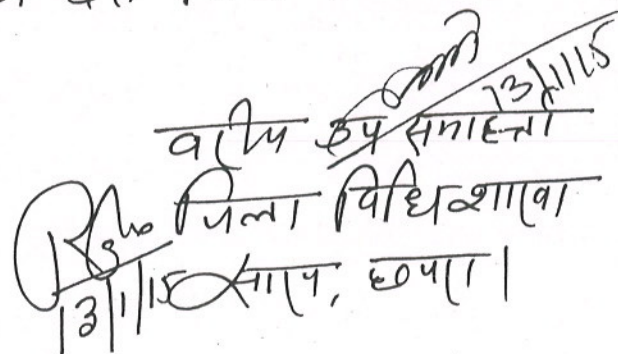 13/1/15
वरीय उप समाहर्त्ता
जिला विधि शाखा
13/1/15 सारण, छपरा।